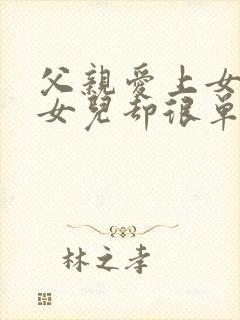 父親愛上女
女兒却很单
林之孝